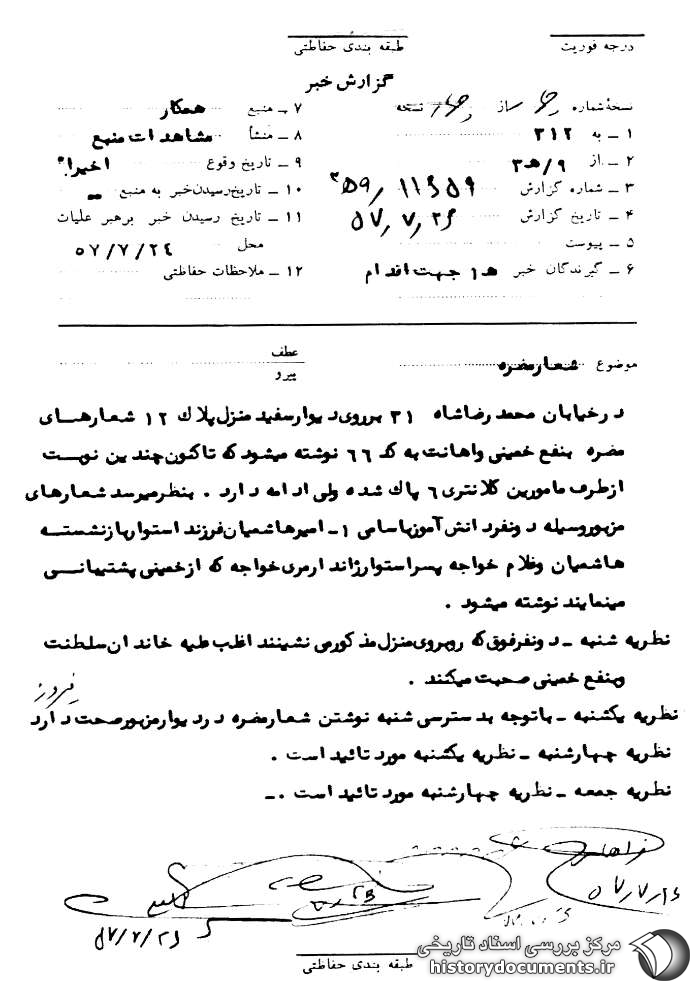 درجه فوریت
طبقه بندی حفاظتی
گزارش خبر
نسخهٔ شماره از نسخه
۱ ـ به ۳۱۲
۲ ـ از ۹/هـ۳
۳ ـ شماره گزارش
۴ ـ تاریخ گزارش ۵۷٫۷٫۲۶
۵ ـ پیوست
۶ ـ گیرندگان خبر هـ۱ جهت اقدام
۷ ـ منبع همکار
۸ ـ منشأ مشاهدات منبع
۹ ـ تاریخ وقوع اخیراً
۱۰ ـ تاریخ رسیدن خبر به منبع ــ
۱۱ ـ تاریخ رسیدن خبر برهبر عملیات
محل ۵۷/۷/۲۴
۱۲ ـ ملاحظات حفاظتی
موضوع شعار مضره
عطف
پیرو
در خیابان محمد رضا شاه ۳۱ بر روی دیوار سفید منزل پلاک ۱۲ شعارهـای
مضره بنفع خمینی واهانت به کد ۶۶ نوشته میشود که تاکنون چندین نوبـت
از طرف مامورین کلانتری ۶ پاک شده ولی ادامه دارد . بنظر میرسد شعارهای
مزبور وسیله دو نفر دانش آموز باسامی ۱ـ امیر هاشمیان فرزند استوار بازنشستـه
هاشمیان و غلام خواجه پسر استوار ژاندارمری خواجه که از خمینی پشتیبانــی
مینمایند نوشته میشود .
نظریه شنبه ـ دو نفر فوق که روبروی منزل مذکور می نشینند اغلب علیه خاندان سلطنت
و بنفع خمینی صحبت میکنند .
فیروز
نظریه یکشنبه ـ با توجه بدسترسی شنبه نوشتن شعار مضره در دیوار مزبور صحت دارد
نظریه چهارشنبه ـ نظریه یکشنبه مورد تائید است .
نظریه جمعه ـ نظریه چهارشنبه مورد تائید است .ــ
۵۷٫۷٫۲۶
۵۷/۷/۲۶
طبقه بندی حفاظتی
مرکز بررسی اسناد تاریخی
historydocuments.ir